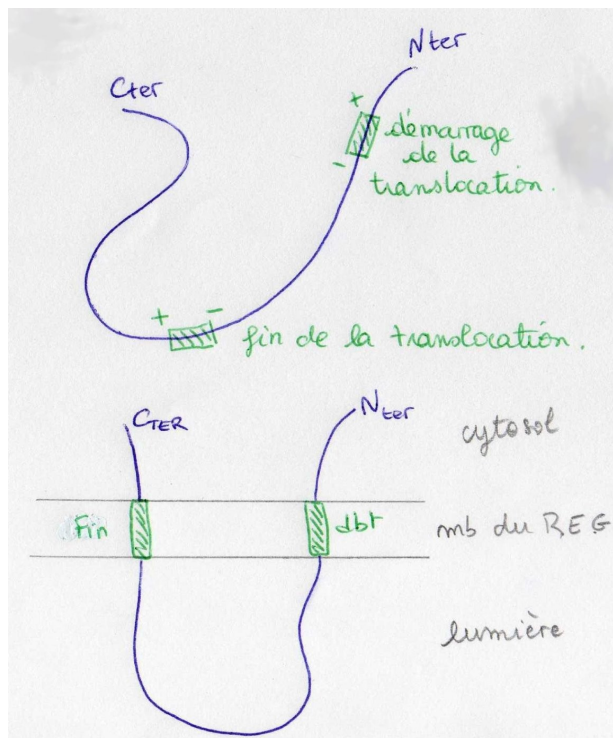 Nter
Cter
+
démarrage
de la
-
translocation.
+ -
fin de la translocation.
CTER
Nter
cytosol
Fin
dbt
mb du REG
lumière